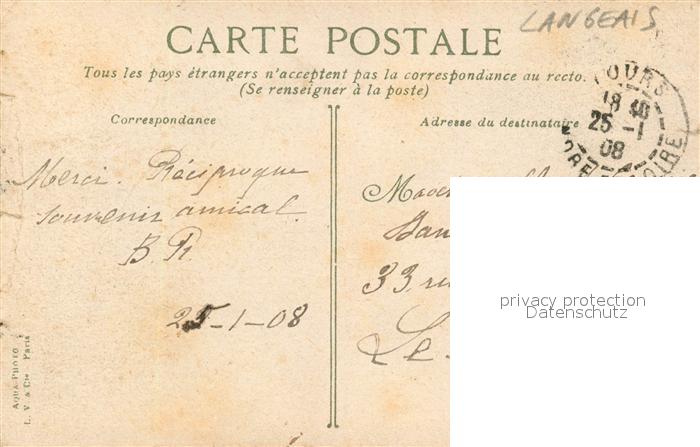 LANGEAIS
CARTE POSTALE
Tous les pays étrangers n'acceptent pas la correspondance au recto.
(Se renseigner à la poste)
TOURS
18 40
25 -1
08
INDRE ET LOIRE
Correspondance
Adresse du destinataire
Merci. Réciproque
souvenir amical.
B. R.
25-1-08
33 ru
Le
privacy protection
Datenschutz
AQUA-PHOTO
L. V. & Cie Paris